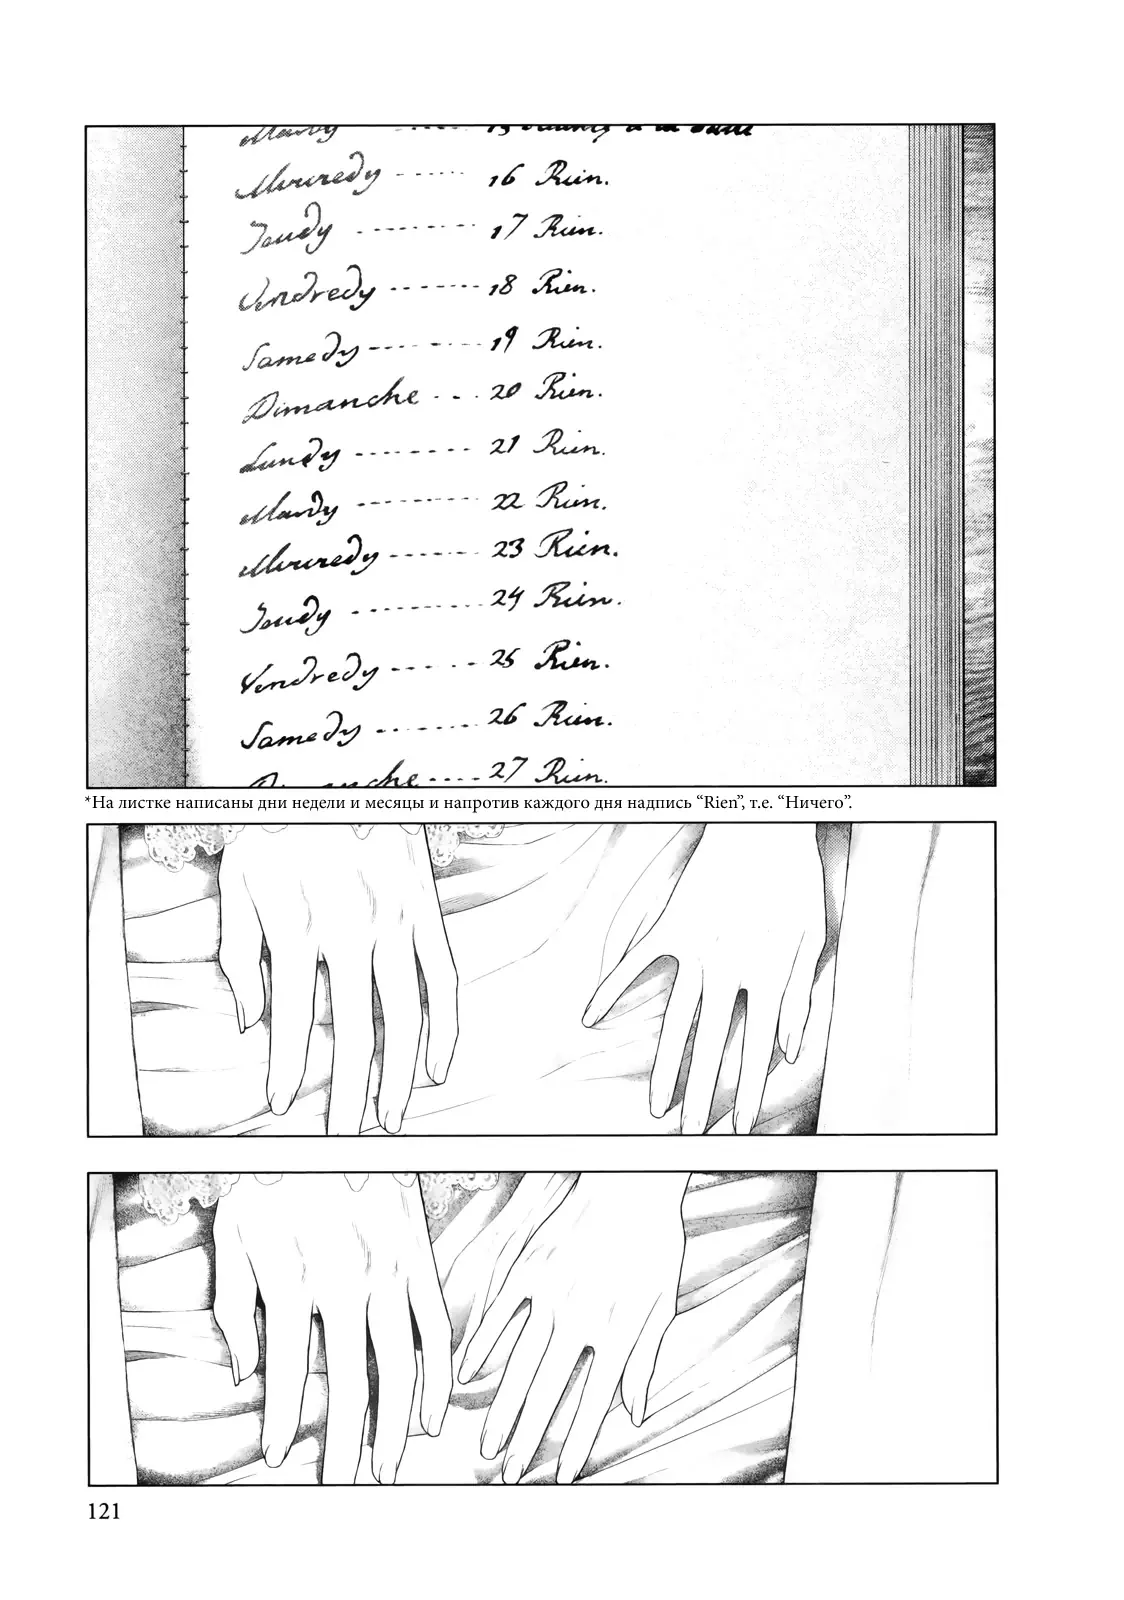 Mercredy ------ 16 Rien.
Jeudy --------- 17 Rien.
Vendredy ------- 18 Rien.
Samedy --- - --- 19 Rien.
Dimanche - - - 20 Rien.
Lundy -------- 21 Rien.
Mardy ---------- 22 Rien.
Mercredy ------- 23 Rien.
Jeudy ---------- 24 Rien.
Vendredy ------ 25 Rien.
Samedy ------- 26 Rien.
Dimanche ---- 27 Rien.
*На листке написаны дни недели и месяцы и напротив каждого дня надпись “Rien”, т.е. “Ничего”.
121